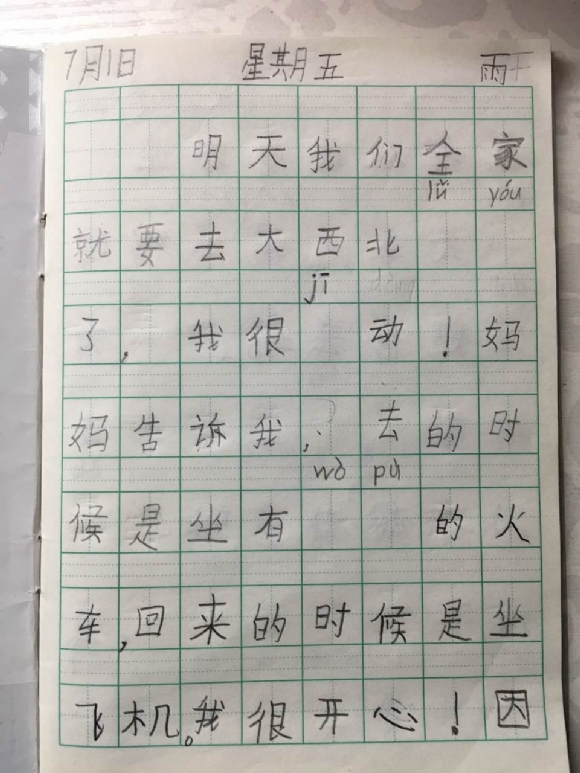 7月1日 星期五 雨
明天我们全家
lǚ yóu
就要去大西北
jī
了，我很 动！妈
妈告诉我，去的时
wò pù
候是坐有 的火
车，回来的时候是坐
飞机。我很开心！因